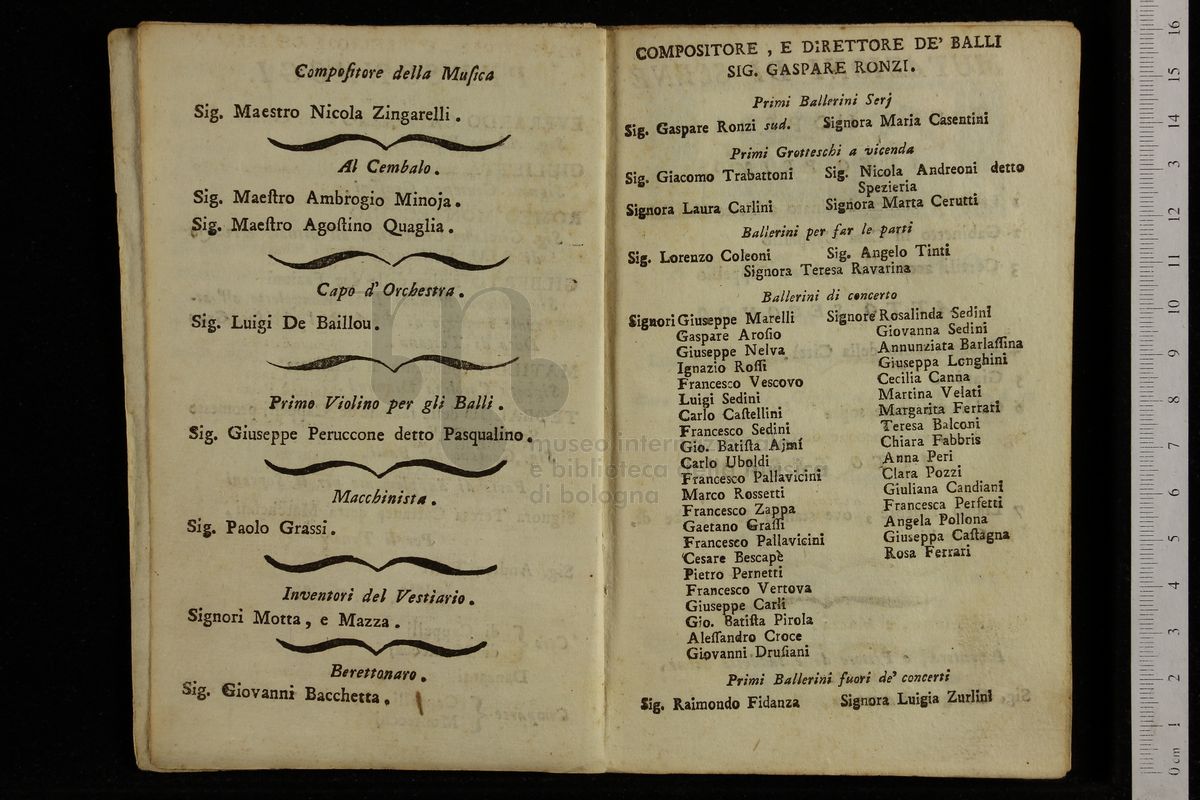 Compoſitore della Muſica
Sig. Maestro Nicola Zingarelli.
Al Cembalo.
Sig. Maeſtro Ambrogio Minoja.
Sig. Maeſtro Agoſtino Quaglia.
Capo d' Orcheſtra.
Sig. Luigi De Baillou.
Primo Violino per gli Balli.
Sig. Giuseppe Peruccone detto Pasqualino.
Macchinista.
Sig. Paolo Grassi.
Inventori del Vestiario.
Signori Motta, e Mazza.
Berettonaro.
Sig. Giovanni Bacchetta.
COMPOSITORE, E DIRETTORE DE' BALLI
SIG. GASPARE RONZI.
Primi Ballerini Serj
Sig. Gaspare Ronzi sud. Signora Maria Casentini
Primi Grotteschi a vicenda
Sig. Giacomo Trabattoni Sig. Nicola Andreoni detto
Spezieria
Signora Laura Carlini Signora Marta Cerutti
Ballerini per far le parti
Sig. Lorenzo Coleoni Sig. Angelo Tinti
Signora Teresa Ravarina
Ballerini di concerto
Signori Giuseppe Marelli
Gaspare Aroſio
Giuseppe Nelva
Ignazio Roſſi
Francesco Vescovo
Luigi Sedini
Carlo Caſtellini
Francesco Sedini
Gio. Batiſta Ajmi
Carlo Uboldi
Francesco Pallavicini
Marco Rossetti
Francesco Zappa
Gaetano Graſſi
Francesco Pallavicini
Cesare Bescapè
Pietro Pernetti
Francesco Vertova
Giuseppe Carli
Gio. Batiſta Pirola
Aleſſandro Croce
Giovanni Druſiani
Signore Rosalinda Sedini
Giovanna Sedini
Annunziata Barlaſſina
Giuseppa Longhini
Cecilia Canna
Martina Velati
Margarita Ferrari
Teresa Balconi
Chiara Fabbris
Anna Peri
Clara Pozzi
Giuliana Candiani
Francesca Perfetti
Angela Pollona
Giuseppa Caſtagna
Rosa Ferrari
Primi Ballerini fuori de' concerti
Sig. Raimondo Fidanza Signora Luigia Zurlini
m.
museo
e biblioteca
di bologna
0 cm 1 2 3 4 5 6 7 8 9 10 11 12 13 14 15 16